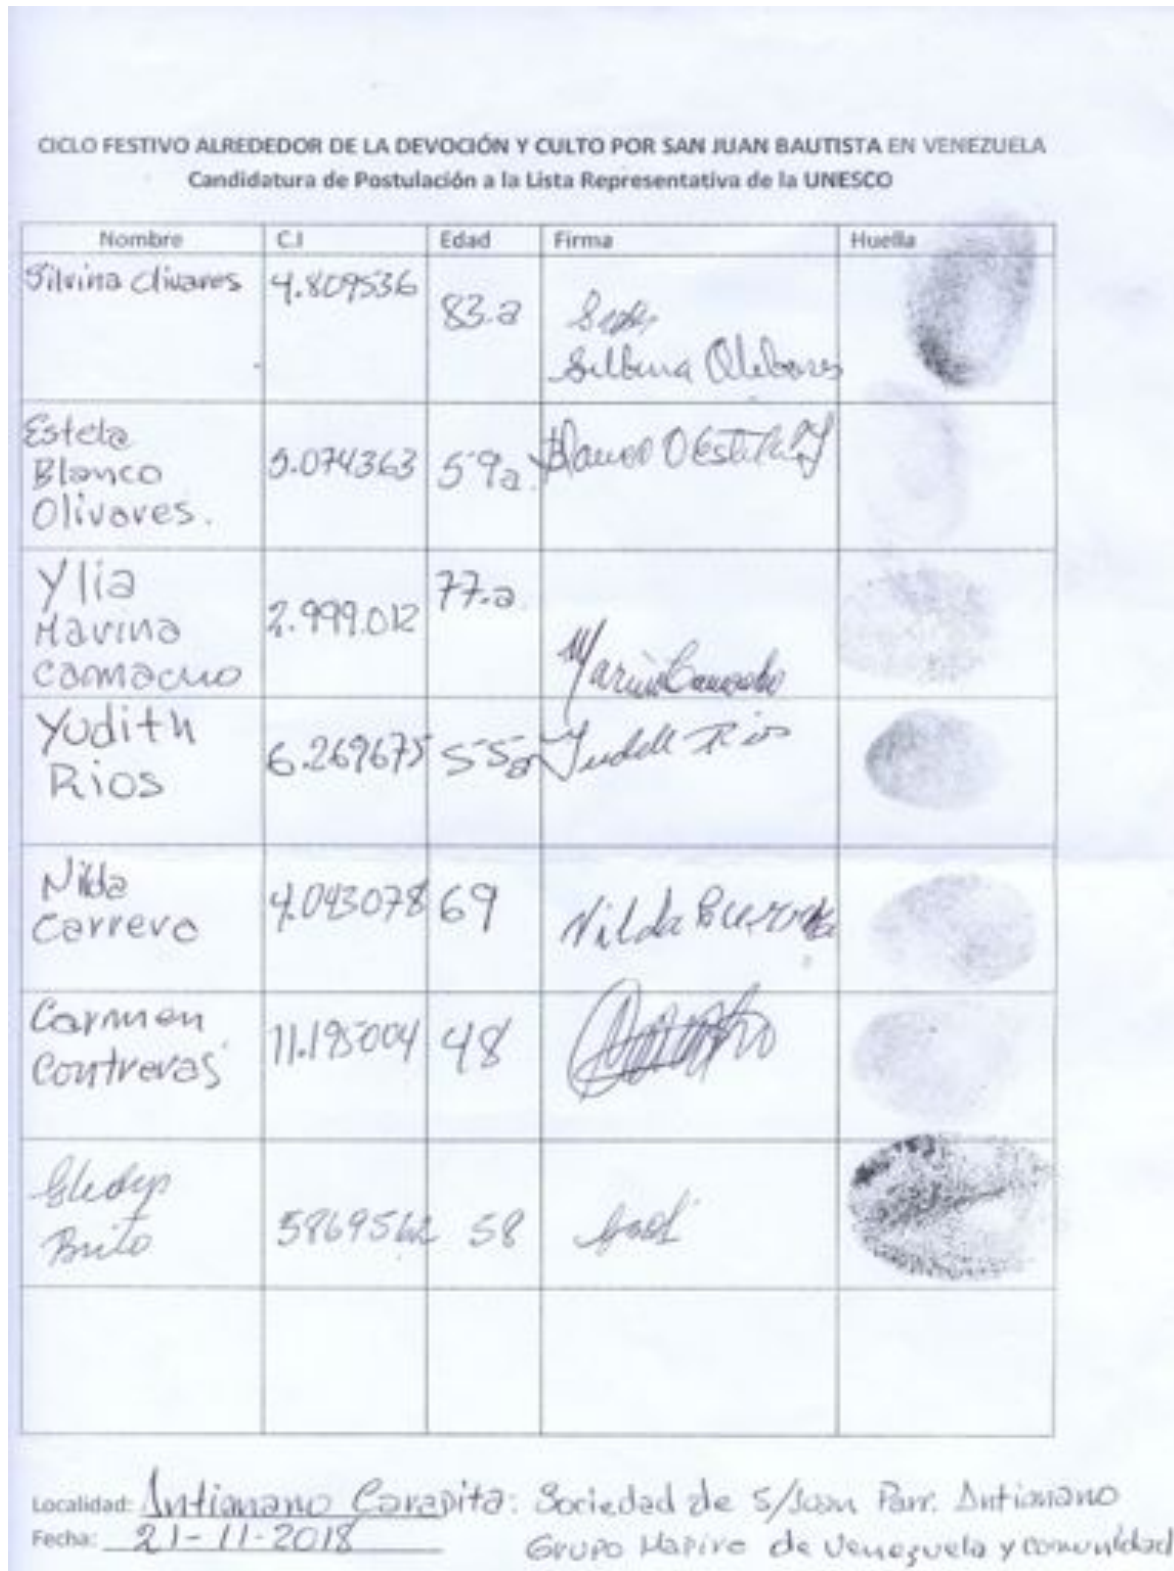 CICLO FESTIVO ALREDEDOR DE LA DEVOCIÓN Y CULTO POR SAN JUAN BAUTISTA EN VENEZUELA
Candidatura de Postulación a la Lista Representativa de la UNESCO
Nombre C.I Edad Firma Huella
Silvina Olivares 4.809536 83.a
Silbina Olibares
Estela
Blanco
Olivares.
5.074363 59a. Blanco O Estela
Ylia
Marina
Camacho
2.999.012 77.a
Marina Camacho
Yudith
Rios
6.269675 55a Yudith Rios
Nilda
Carrero
4.043078 69 Nilda
Carmen
Contreras
11.195004 48
Gladys
Brito
5869562 58
Localidad: Antimano Carapita: Sociedad de S/Juan Parr. Antimano
Fecha: 21-11-2018
Grupo Mapire de Venezuela y comunidad